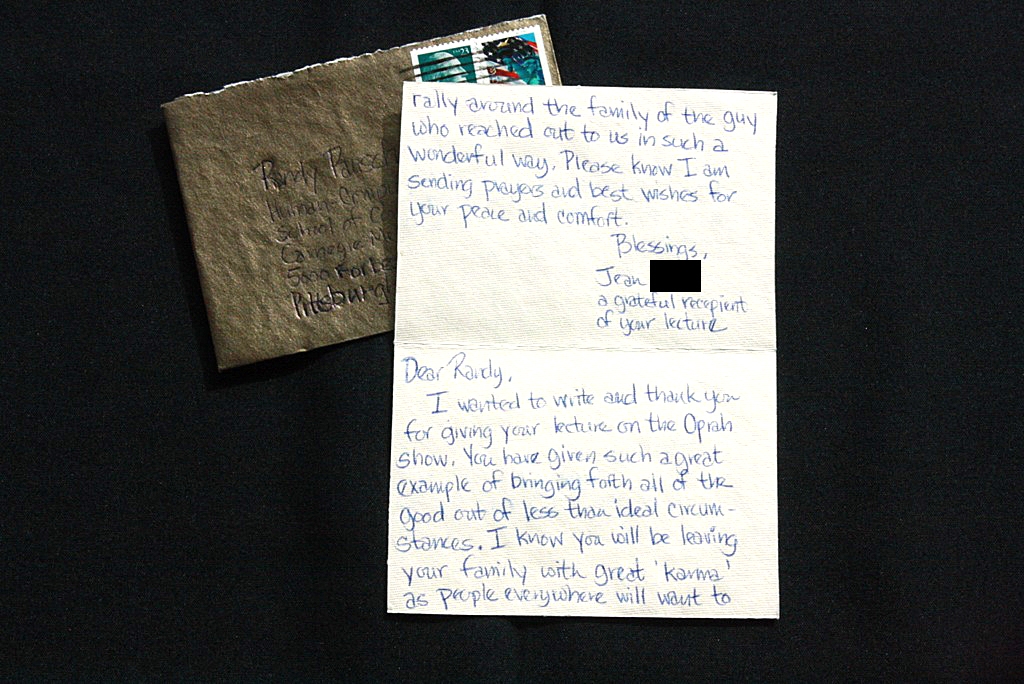 Randy Pausch
Human
School of C
Carnegie
5000 Forbes
Pittsburgh
23
rally around the family of the guy
who reached out to us in such a
wonderful way. Please know I am
sending prayers and best wishes for
your peace and comfort.
Blessings,
Jean
a grateful recepient
of your lecture
Dear Randy,
I wanted to write and thank you
for giving your lecture on the Oprah
show. You have given such a great
example of bringing forth all of the
good out of less than ideal circum-
stances. I know you will be leaving
your family with great 'karma'
as people everywhere will want to